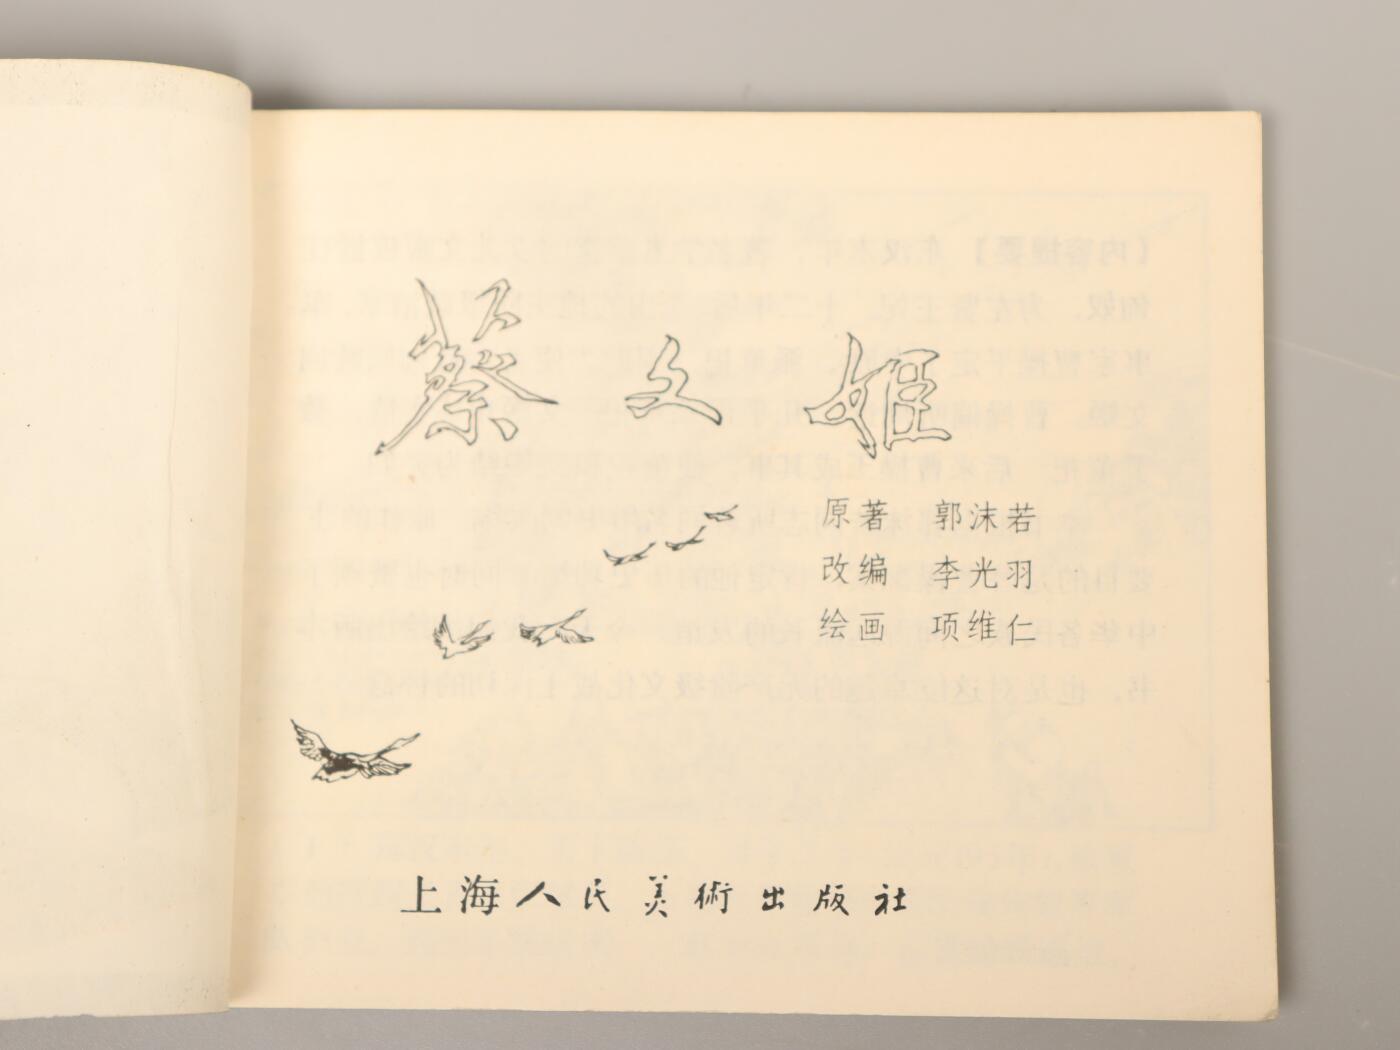 蔡文姬
原著 郭沫若
改编 李光羽
绘画 项维仁
上海人民美術出版社